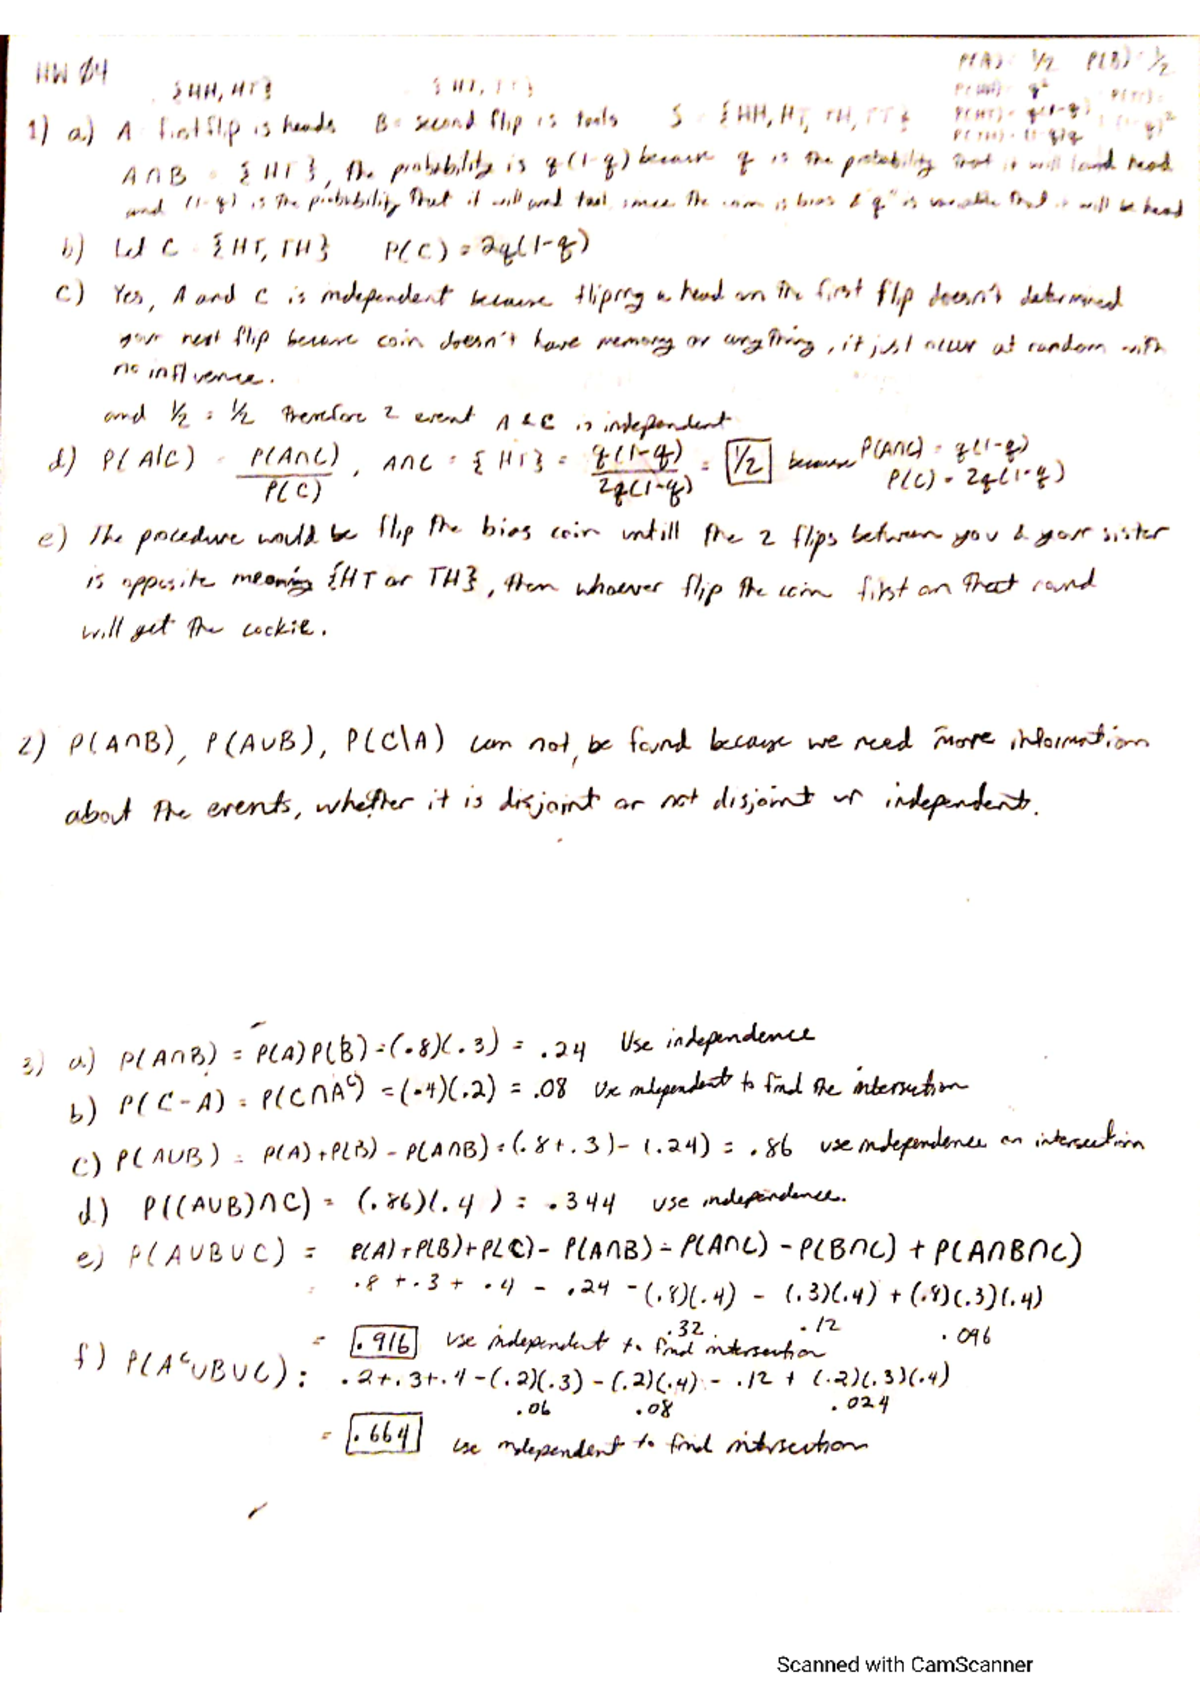 HW Ø4
{HH, HT}
P(A) = 1/2 P(B) = 1/2
1) a) A = first flip is heads B = second flip is tails S = {HH, HT, TH, TT}
A∩B = {HT}, the probability is q(1-q) because q is the probability that it will land head
and (1-q) is the probability that it will land tail, since the coin is bias & "q" is variable that it will be head
b) Let C = {HT, TH} P(C) = 2q(1-q)
c) Yes, A and C is independent because fliping a head on the first flip doesn't determined
your next flip because coin doesn't have memory or anything, it just occur at random with
no influence.
and 1/2 = 1/2 therefore 2 event A & C is independent
d) P(A|C) = P(A∩C)/P(C), A∩C = {HT} = q(1-q)/2q(1-q) = 1/2 because P(A∩C) = q(1-q)
P(C) = 2q(1-q)
e) The procedure would be flip the bias coin untill the 2 flips between you & your sister
is opposite meaning {HT or TH}, then whoever flip the coin first on that round
will get the cockie.
2) P(A∩B), P(A∪B), P(C\A) can not, be found because we need more information
about the events, whether it is disjoint or not disjoint or independent.
3) a) P(A∩B) = P(A)P(B) = (.8)(.3) = .24 Use independence
b) P(C-A) = P(C∩Aᶜ) = (.4)(.2) = .08 Use independent to find the intersection
c) P(A∪B) = P(A)+P(B) - P(A∩B) = (.8+.3) - (.24) = .86 use independence on intersection
d) P((A∪B)∩C) = (.86)(.4) = .344 use independence.
e) P(A∪B∪C) = P(A)+P(B)+P(C) - P(A∩B) - P(A∩C) - P(B∩C) + P(A∩B∩C)
= .8 + .3 + .4 - .24 - (.8)(.4) - (.3)(.4) + (.8)(.3)(.4)
.32 .12 .096
= .916 use independent to find intersection
f) P(Aᶜ∪B∪C) = .2+.3+.4 - (.2)(.3) - (.2)(.4) - .12 + (.2)(.3)(.4)
.06 .08 .024
= .664 use independent to find intersection
Scanned with CamScanner